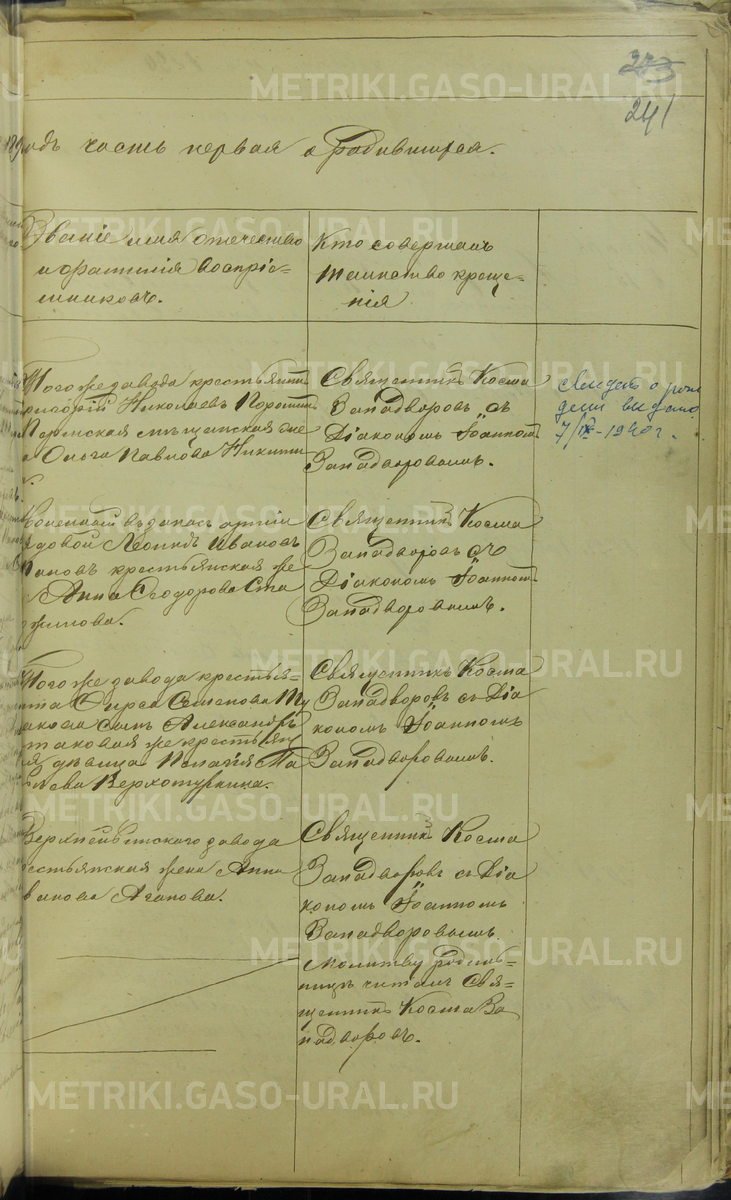 273
241
189 годъ часть первая о родившихся.
Званіе имя отечество
и фамилія воспріе-
мниковъ.
Кто совершалъ
таинство креще-
нія
Тогоже завода крестьянинъ
Николаевъ
Пермская мѣщанская
Ольга Павлова Никити
Священникъ Косма
Западворовъ съ
Діакономъ Іоанномъ
Западворовымъ.
свидет о рож
дени выдано
7/IX-1940г.
въ запасъ арміи
Леонидъ Ивановъ
крестьянская же
Анна Ѳеодорова Ста
Священникъ Косма
Западворовъ съ
Діакономъ Іоанномъ
Западворовымъ.
Того же завода крестья-
нина Семенова
сынъ Александръ
таковая же крестьян
дѣвица Пелагія
Верхотуркина.
Священникъ Косма
Западворовъ съ Діа
кономъ Іоанномъ
Западворовымъ.
завода
естьянская жена Анна
ванова Агапова.
Священникъ Косма
Западворовъ съ Діа
кономъ Іоанномъ
Западворовымъ.
Молитву родиль-
ницѣ читалъ Свя-
щенникъ Косма За
падворовъ.
METRIKI.GASO-URAL.RU